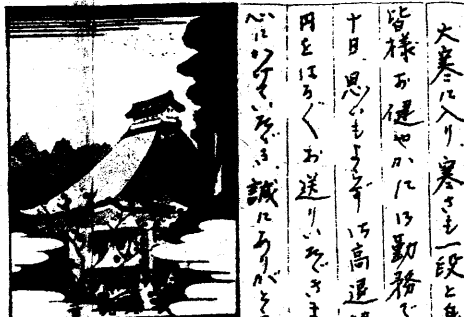 大寒に入り、寒さも一段と
皆様お健やかに御勤務で
十日、思いもよらず御高退
円をはる〲お送りいただきま
心にかけていただき、誠にありがと